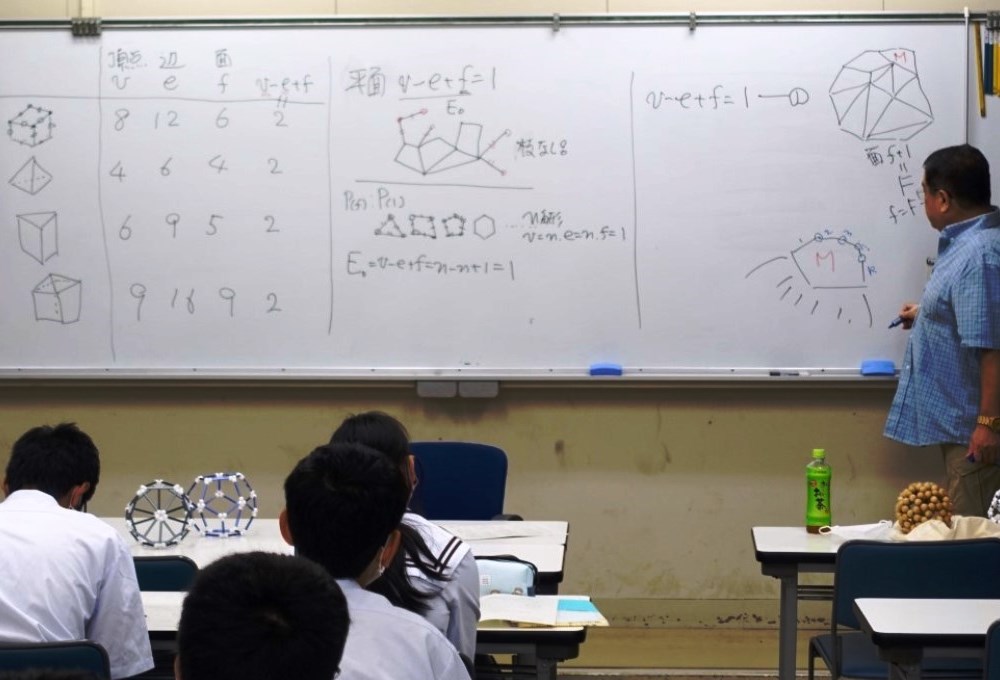 頂点 辺 面
v e f v-e+f
=
8 12 6 2
4 6 4 2
6 9 5 2
9 16 9 2
平面 v-e+f=1
E₀
枝なし
P(5):P(1)
… n角形
v=n.e=n.f=1
E₀=v-e+f=n-n+1=1
v-e+f=1 — ①
M
面 f+1
=
F
f=F
M
1 2
k
お茶